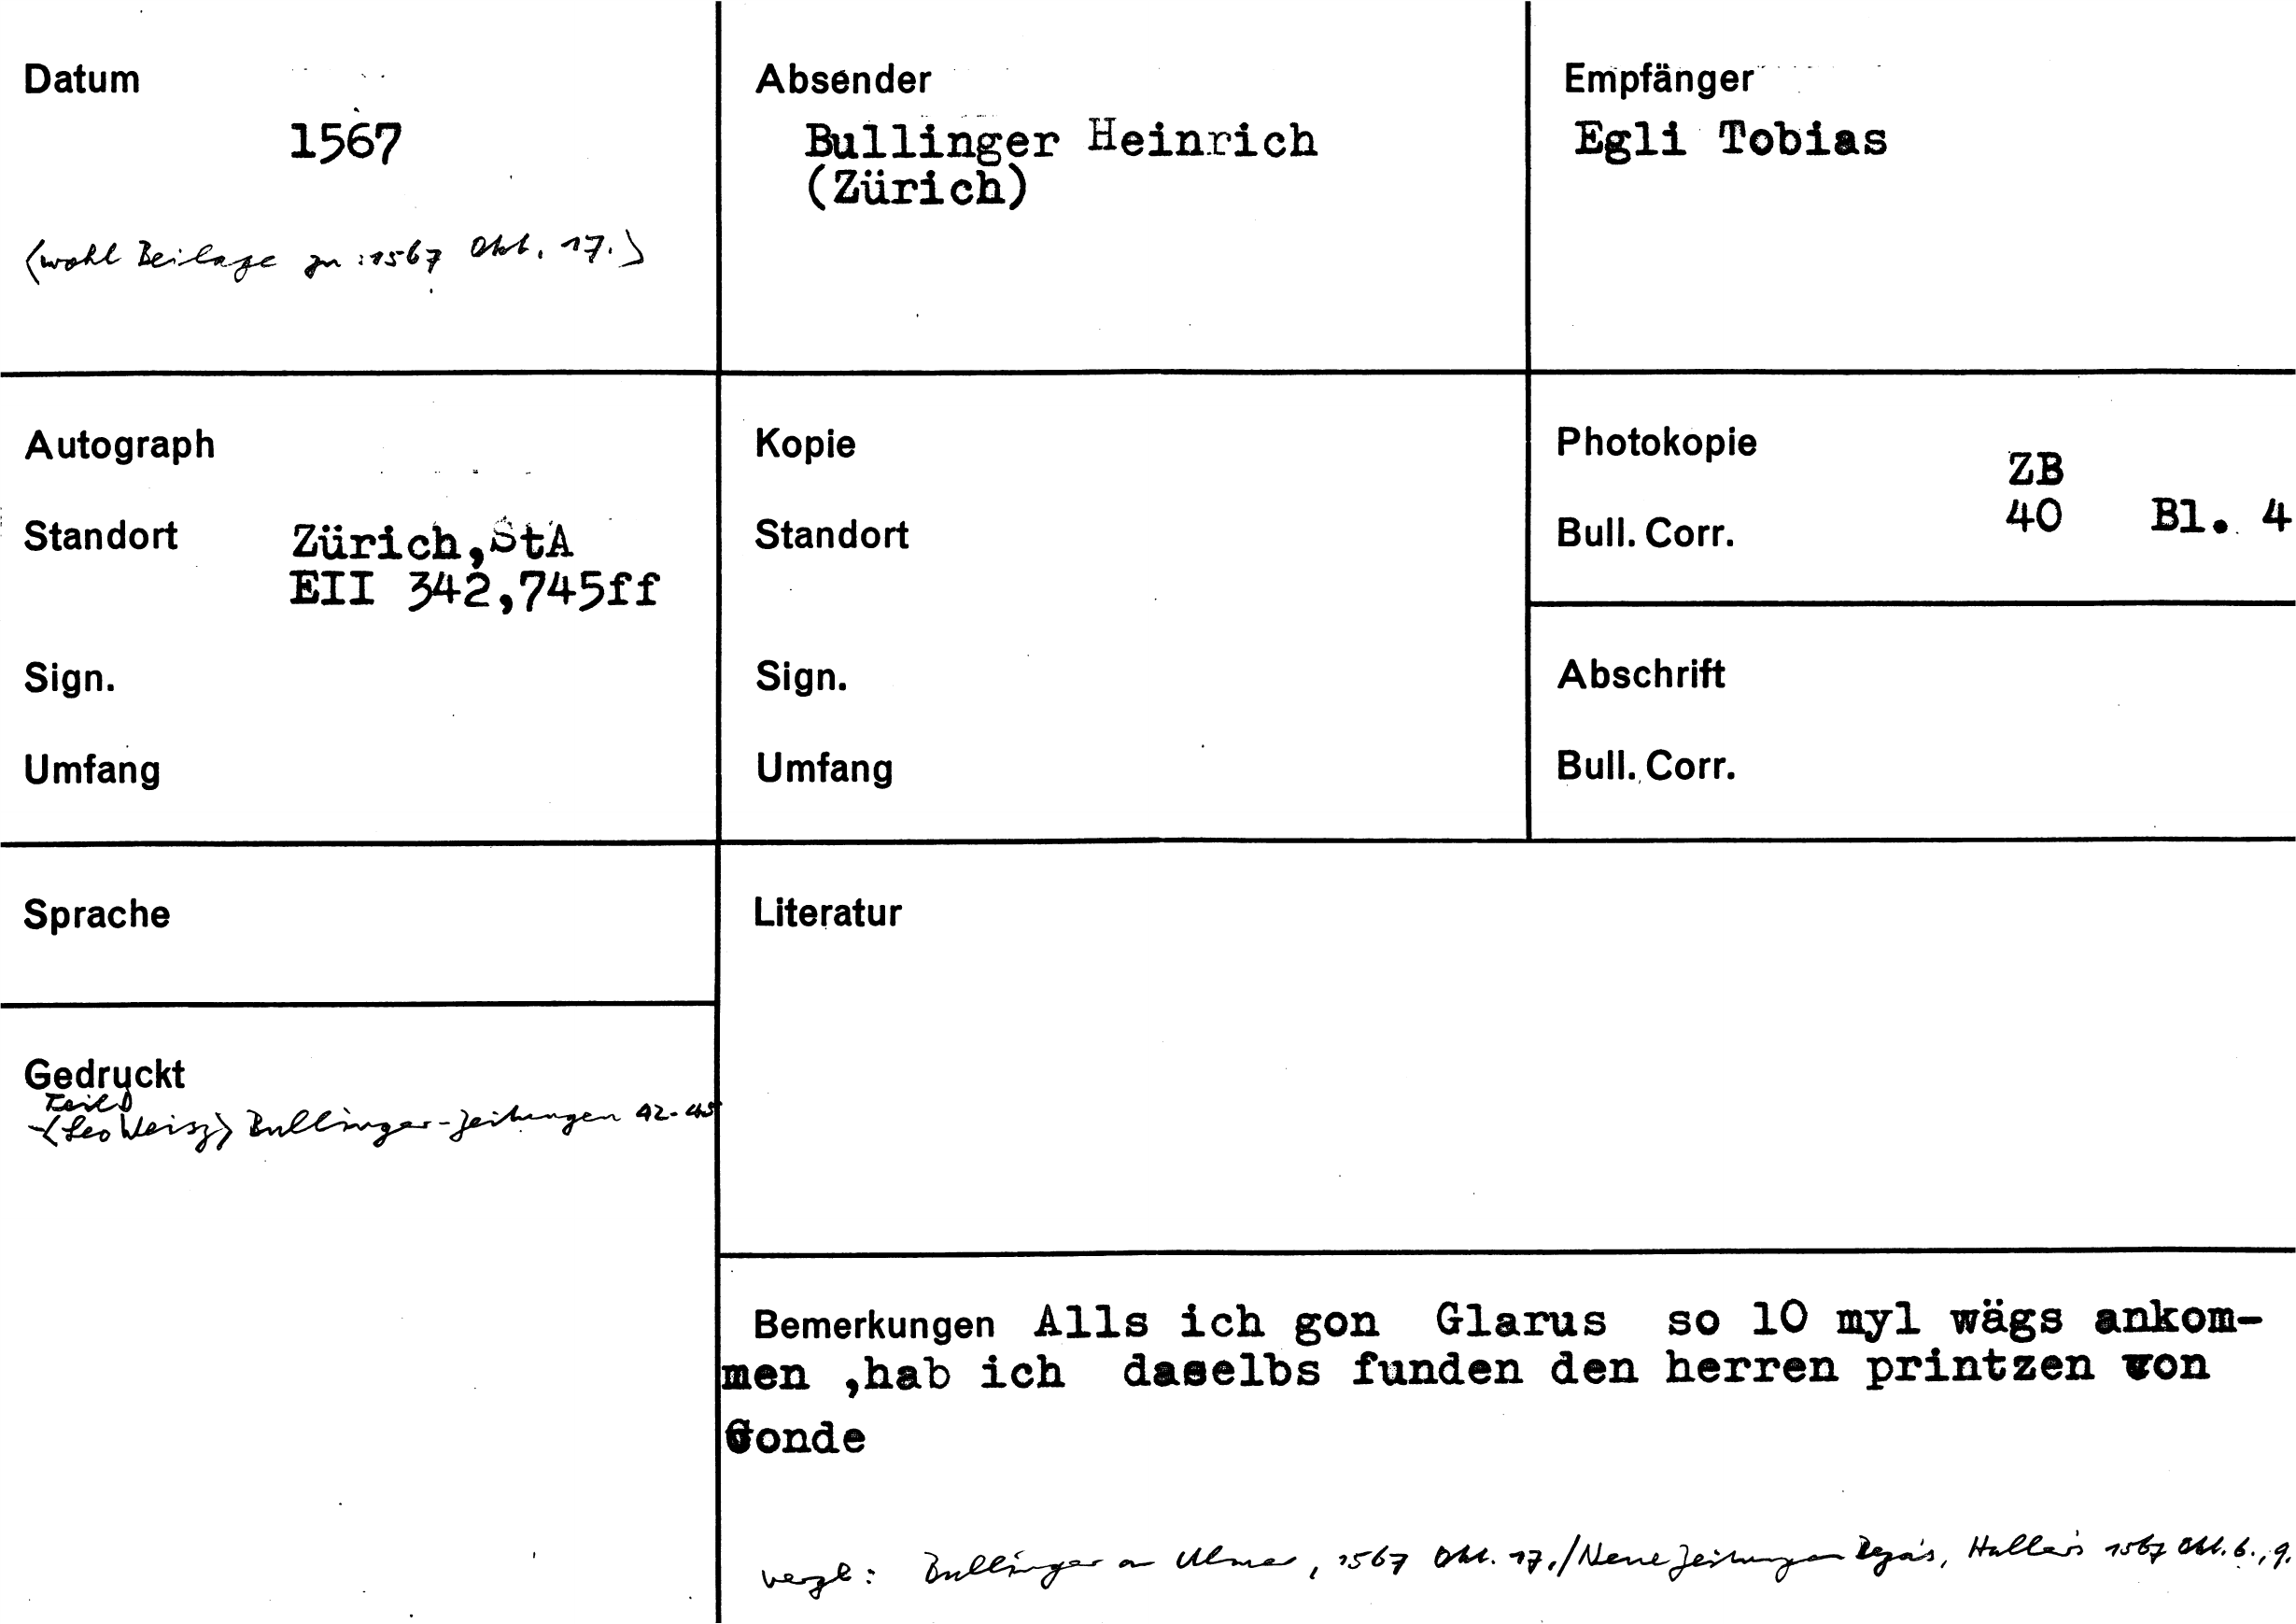 Datum
1567
(wohl Beilage zu: 1567 Okt. 17.)
Absender
Bullinger Heinrich
(Zürich)
Empfänger
Egli Tobias
Autograph
Standort Zürich,StA
EII 342,745ff
Sign.
Umfang
Kopie
Standort
Sign.
Umfang
Photokopie ZB
Bull. Corr. 40 Bl. 4
Abschrift
Bull. Corr.
Sprache
Gedruckt
Teild
(Leo Weisz) Bullinger-Zeitungen 42-45
Literatur
Bemerkungen Alls ich gon Glarus so 10 myl wägs ankom-
men ,hab ich daselbs funden den herren printzen von
Conde
vergl: Bullinger an Ulmer, 1567 Okt. 17./Neue Zeitungen Bezas, Hallers 1567 Okt. 6., 9.